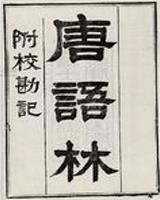 唐語林
附校勘記